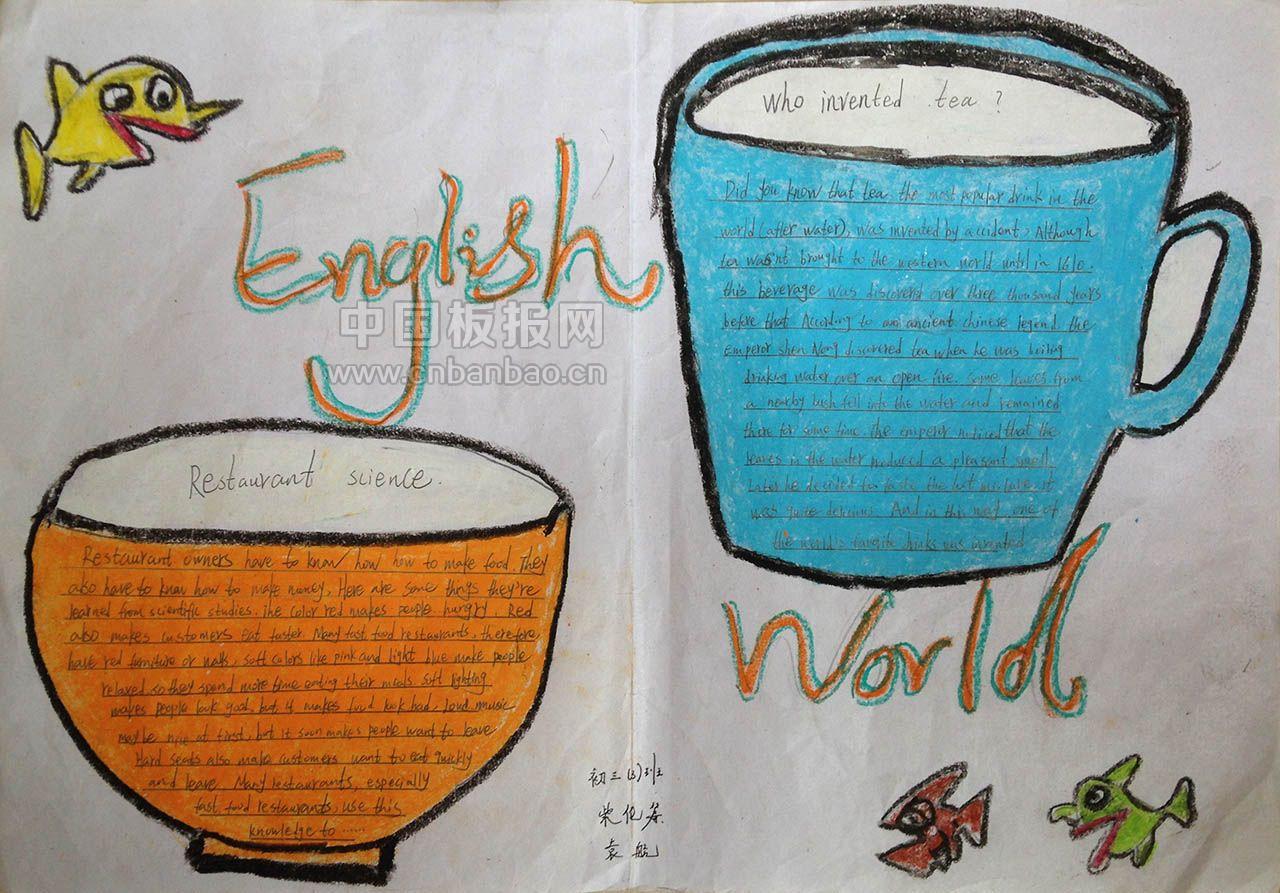 English
中国板报网
www.cnbanbao.cn
Who invented tea?
Did you know that tea, the most popular drink in the
world (after water), was invented by accident? Although
tea wasn't brought to the western world until in 1610.
this beverage was discovered over three thousand years
before that. According to an ancient chinese legend. the
emperor shen Nong discovered tea when he was boiling
drinking water over an open fire. some leaves from
a nearby bush fell into the water and remained
there for some time. The emperor noticed that the
leaves in the water produced a pleasant smell.
Later he decided to taste the hot mixture. it
was quite delicious. And in this way one of
the world's favorite drinks was invented
Restaurant science.
Restaurant owners have to know how how to make food. They
also have to know how to make money. Here are some things they're
learned from scientific studies. The color red makes people hungry. Red
also makes customers eat faster. Many fast food restaurants, therefore,
have red furniture or walls. soft colors like pink and light blue make people
relaxed so they spend more time eating their meals soft lighting
makes people look good, but it makes food look bad. Loud music
may be nice at first, but it soon makes people want to leave
Hard seats also make customers want to eat quickly
and leave. Many restaurants, especially
fast food restaurants, use this
knowledge to ......
World
初三(3)班
袁航